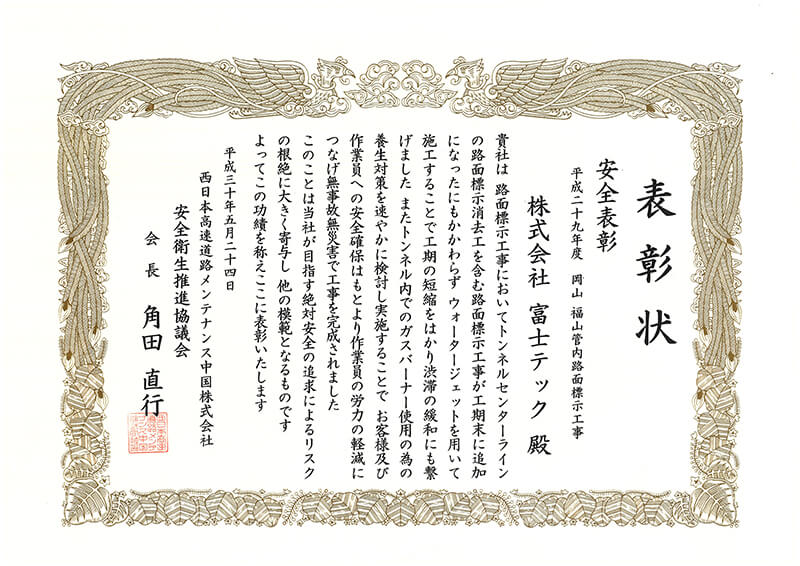 表彰状
安全表彰
平成二十九年度 岡山 福山管内路面標示工事
株式会社 富士テック 殿
貴社は 路面標示工事においてトンネルセンターライン
の路面標示消去工を含む路面標示工事が工期末に追加
になったにもかかわらず ウォータージェットを用いて
施工することで工期の短縮をはかり渋滞の緩和にも繋
げました またトンネル内でのガスバーナー使用の為の
養生対策を速やかに検討し実施することで お客様及び
作業員への安全確保はもとより作業員の労力の軽減に
つなげ無事故無災害で工事を完成されました
このことは当社が目指す絶対安全の追求によるリスク
の根絶に大きく寄与し 他の模範となるものです
よってこの功績を称えここに表彰いたします
平成三十年五月二十四日
西日本高速道路メンテナンス中国株式会社
安全衛生推進協議会
会長 角田 直行